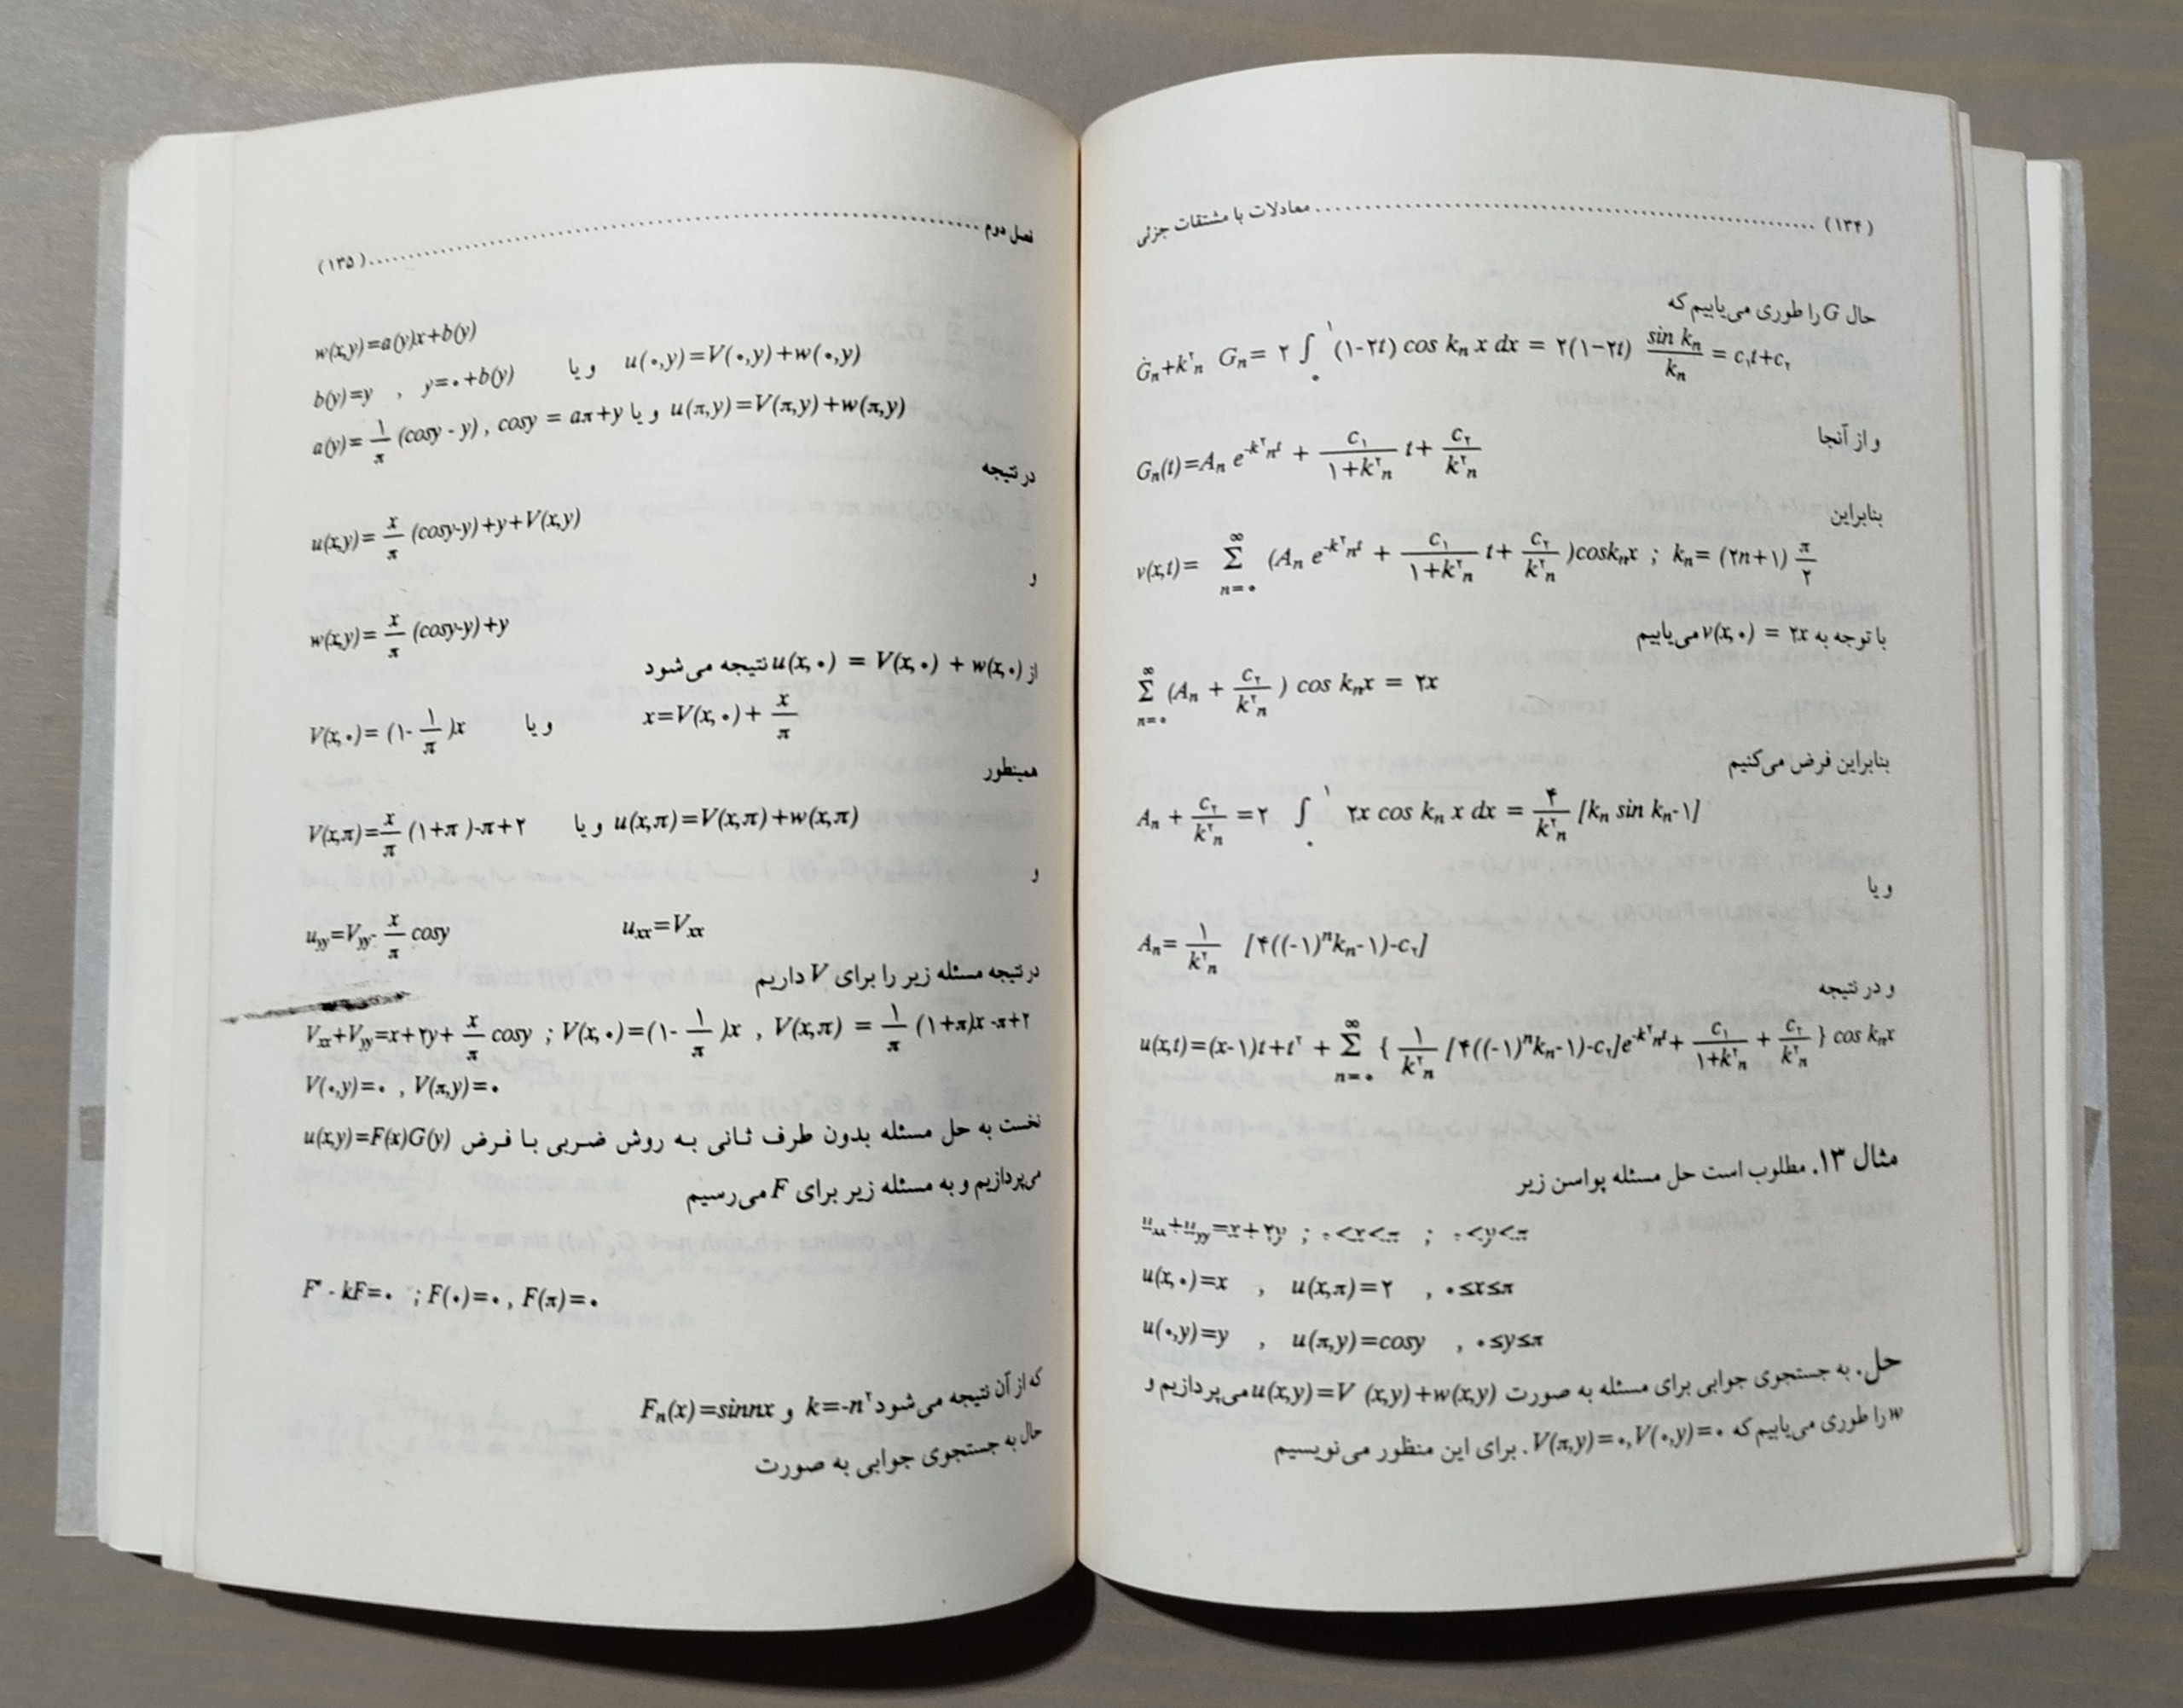 (۱۳۴) .......... معادلات با مشتقات جزئی
حال G را طوری می‌یابیم که
Ġₙ+k²ₙ Gₙ= ۲ ∫₀¹ (۱-۲t) cos kₙ x dx = ۲(۱-۲t) (sin kₙ)/(kₙ) = c₁t+c₂
و از آنجا
Gₙ(t)=Aₙ e^(-k²ₙt) + (c₁)/(۱+k²ₙ) t+ (c₂)/(k²ₙ)
بنابراین
v(x,t)= Σ_(n=۰)^∞ (Aₙ e^(-k²ₙt) + (c₁)/(۱+k²ₙ) t+ (c₂)/(k²ₙ) )coskₙx ; kₙ= (۲n+۱) π/۲
با توجه به v(x,۰) = ۲x می‌یابیم
Σ_(n=۰)^∞ (Aₙ + (c₂)/(k²ₙ) ) cos kₙx = ۲x
بنابراین فرض می‌کنیم
Aₙ + (c₂)/(k²ₙ) =۲ ∫₀¹ ۲x cos kₙ x dx = ۴/(k²ₙ) [kₙ sin kₙ-۱]
و یا
Aₙ= ۱/(k²ₙ) [۴((-۱)ⁿkₙ-۱)-c₂]
و در نتیجه
u(x,t)=(x-۱)t+t² + Σ_(n=۰)^∞ { ۱/(k²ₙ) [۴((-۱)ⁿkₙ-۱)-c₂]e^(-k²ₙt)+ (c₁)/(۱+k²ₙ) + (c₂)/(k²ₙ) } cos kₙx
مثال ۱۳. مطلوب است حل مسئله پواسن زیر
uₓₓ+u_yy=x+۲y ; ۰<x<π ; ۰<y<π
u(x,۰)=x , u(x,π)=۲ , ۰≤x≤π
u(۰,y)=y , u(π,y)=cosy , ۰≤y≤π
حل. به جستجوی جوابی برای مسئله به صورت u(x,y)=V (x,y)+w(x,y) می‌پردازیم و
w را طوری می‌یابیم که V(π,y)=۰,V(۰,y)=۰. برای این منظور می‌نویسیم
فصل دوم .......... (۱۳۵)
w(x,y)=a(y)x+b(y)
b(y)=y , y=۰+b(y) و یا u(۰,y)=V(۰,y)+w(۰,y)
a(y)= ۱/π (cosy - y) , cosy = aπ+y و یا u(π,y)=V(π,y)+w(π,y)
در نتیجه
u(x,y)= x/π (cosy-y)+y+V(x,y)
و
w(x,y)= x/π (cosy-y)+y
از u(x,۰) = V(x,۰) + w(x,۰) نتیجه می‌شود
V(x,۰)= (۱- ۱/π )x و یا x=V(x,۰)+ x/π
همینطور
V(x,π)=x/π (۱+π )-π+۲ و یا u(x,π)=V(x,π)+w(x,π)
و
u_yy=V_yy- x/π cosy uₓₓ=Vₓₓ
در نتیجه مسئله زیر را برای V داریم
Vₓₓ+V_yy=x+۲y+ x/π cosy ; V(x,۰)=(۱- ۱/π )x , V(x,π) = ۱/π (۱+π)x -π+۲
V(۰,y)=۰ , V(π,y)=۰
نخست به حل مسئله بدون طرف ثانی به روش ضربی با فرض u(x,y)=F(x)G(y)
می‌پردازیم و به مسئله زیر برای F می‌رسیم
F″ - kF=۰ ; F(۰)=۰ , F(π)=۰
که از آن نتیجه می‌شود k=-n² و Fₙ(x)=sinnx
حال به جستجوی جوابی به صورت